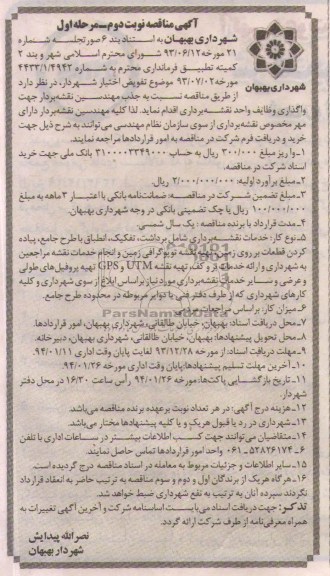 آگهی مناقصه نوبت دوم ـ مرحله اول
شهرداری بهبهان به استناد بند ۶ صورتجلسه شماره
۲۱ مورخه ۹۳/۰۶/۱۲ شورای محترم اسلامی شهر و بند ۲
کمیته تطبیق فرمانداری محترم به شماره ۴۴۳۳/۱/۴۹۴۲
مورخه ۹۳/۰۷/۰۲ موضوع تفویض اختیار شهردار، در نظر دارد
شهرداری بهبهان
از طریق مناقصه نسبت به جذب مهندسین نقشه‌بردار جهت
واگذاری وظایف واحد نقشه‌برداری اقدام نماید. لذا کلیه مهندسین نقشه‌بردار دارای
مهر مخصوص نقشه‌برداری از سوی سازمان نظام مهندسی می‌توانند به شرح ذیل جهت
خرید و دریافت فرم شرکت در مناقصه به امور قراردادها مراجعه نمایند.
۱ـ واریز مبلغ ۳۰۰/۰۰۰ ریال به حساب ۳۱۰۰۰۰۳۳۴۹۰۰۰ بانک ملی جهت خرید
اسناد شرکت در مناقصه.
۲ـ مبلغ برآورد اولیه: ۲/۰۰۰/۰۰۰/۰۰۰ ریال.
۳ـ مبلغ تضمین شرکت در مناقصه: ضمانت‌نامه بانکی با اعتبار ۳ ماهه به مبلغ
۱۰۰/۰۰۰/۰۰۰ ریال یا چک تضمینی بانکی در وجه شهرداری بهبهان.
۴ـ مدت قرارداد با برنده مناقصه: یک سال شمسی.
۵ـ نوع کار: خدمات نقشه‌برداری شامل برداشت، تفکیک، انطباق با طرح جامع، پیاده
کردن قطعات بر روی زمین، تهیه نقشه توپوگرافی زمین و انجام خدمات نقشه مراجعین
به شهرداری و ارائه خدمات بر و کف، تهیه نقشه UTM و GPS تهیه پروفیل‌های طولی
و عرضی و سایر خدمات نقشه‌برداری مورد نیاز براساس ابلاغ از سوی شهرداری و کلیه
کارهای شهرداری که از طرف دفتر فنی یا دوایر مربوطه در محدوده طرح جامع.
۶ـ میزان کار: براساس مراجعات
۷ـ محل دریافت اسناد: بهبهان، خیابان طالقانی، شهرداری بهبهان، امور قراردادها.
۸ـ محل تحویل پیشنهادها: بهبهان، خیابان طالقانی، شهرداری بهبهان، دبیرخانه.
۹ـ مهلت دریافت اسناد: از مورخه ۹۳/۱۲/۲۸ لغایت پایان وقت اداری ۹۴/۰۱/۱۱.
۱۰ـ آخرین مهلت تسلیم پیشنهادها: پایان وقت اداری مورخه ۹۴/۰۱/۲۶.
۱۱ـ تاریخ بازگشایی پاکت‌ها: مورخه ۹۴/۰۱/۲۶ رأس ساعت ۱۶/۳۰ در محل دفتر
شهردار.
۱۲ـ هزینه درج آگهی: در هر تعداد نوبت برعهده برنده مناقصه می‌باشد.
۱۳ـ شهرداری در رد یا قبول هر یک و یا کلیه پیشنهادها مختار می‌باشد.
۱۴ـ متقاضیان می‌توانند جهت کسب اطلاعات بیشتر در ساعات اداری با تلفن
۶ـ۵۲۸۲۶۱۷۴ ـ ۰۶۱ واحد امور قراردادها تماس حاصل نمایند.
۱۵ـ سایر اطلاعات و جزئیات مربوط به معامله در اسناد مناقصه درج گردیده است.
۱۶ـ هرگاه هر یک از برندگان اول و دوم و سوم مناقصه به ترتیب حاضر به انعقاد قرارداد
نگردند سپرده آنان به ترتیب به نفع شهرداری ضبط خواهد شد.
تذکر: جهت دریافت اسناد می‌بایست اساسنامه شرکت و آخرین آگهی تغییرات به
همراه معرفی‌نامه از طرف شرکت ارائه گردد.
نصرالله پیدایش
شهردار بهبهان